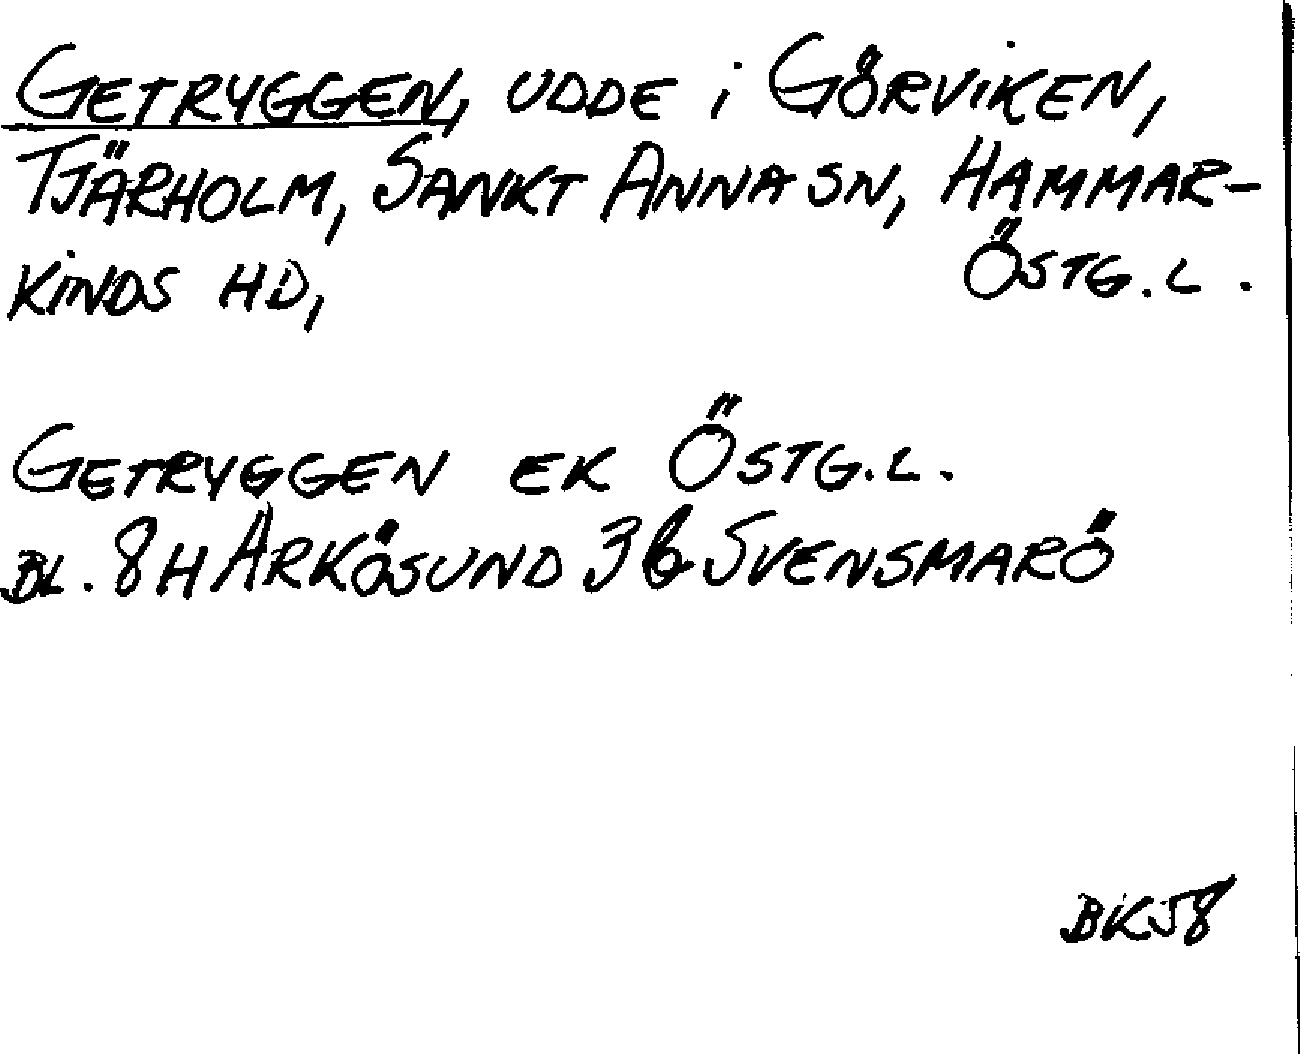 GETRYGGEN, UDDE i GÖRViKEN,
TJÄRHOLM, SANKT ANNA SN, HAMMAR-
KiNDS HD, ÖSTG. L.
GETRYGGEN EK ÖSTG. L.
BL. 8 H ARKÖSUND 3 b SVENSMARÖ
BK58